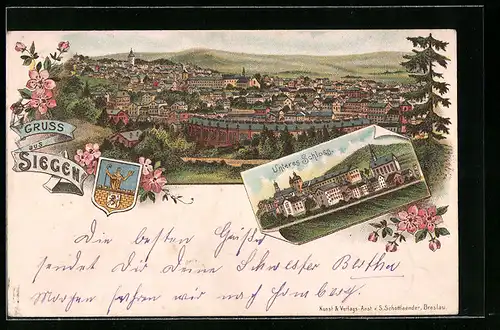 GRUSS
aus
SIEGEN
Unteres Schloss.
Die besten Grüße
sendet Dir Deine Schwester Bertha
Morgen fahren wir nach Homberg.
Kunst & Verlags-Anst. v. S. Schottlaender, Breslau.